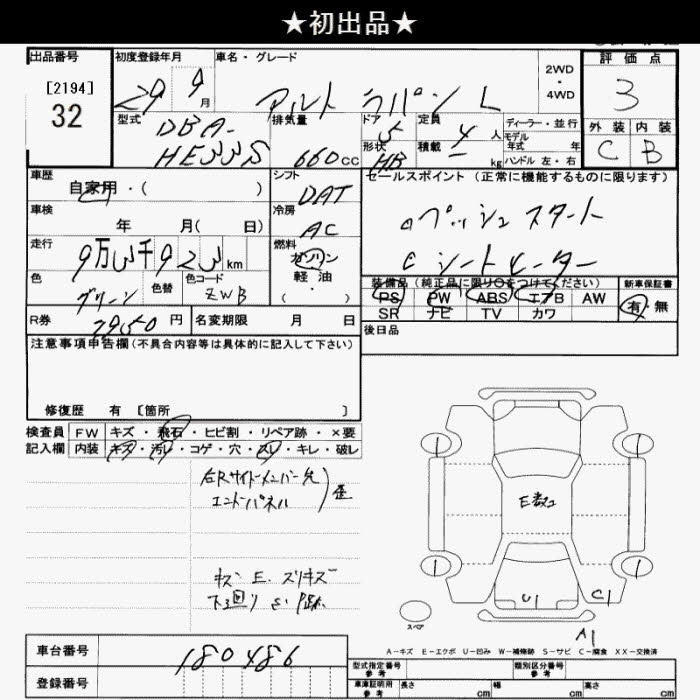 ★初出品★
出品番号
[2194]
32
初度登録年月
29 9月
車名・グレード
アルト ラパン L
2WD
・
4WD
評価点
3
外装 内装
C B
型式
DBA-
HE33S
排気量
660 CC
ドア
5
形状
HB
定員
4 人
積載
ー kg
ディーラー・並行
モデル
年式 年
ハンドル 左・右
車歴
自家用・( )
車検
年 月( 日)
走行
9万3千923km
色
グリーン
色替
色コード
ZWB
シフト
DAT
冷房
AC
燃料
ガソリン
軽油
( ・ )
セールスポイント (正常に機能するものに限ります)
プッシュスタート
シートヒーター
装備品(純正品に限り〇をつけてください)
PS PW ABS エアB AW
SR ナビ TV カワ
新車保証書
有・無
R券
円
名変期限 月 日
後日品
注意事項申告欄(不具合内容等は具体的に記入して下さい)
修復歴 有 [箇所 ]
検査員
記入欄
FW キズ・飛石・ヒビ割・リペア跡・×要
内装 キズ・汚レ・コゲ・穴・スレ・キレ・破レ
右Rサイドメンバー先
エンドパネル
歪
キズ E. スリキズ
下回り S. P跡.
E数2
U1
C1
A1
1
1
1
1
スペア
A-キズ E-エクボ U-凹み W-補修跡 S-サビ C-腐食 XX-交換済
車台番号
180486
登録番号
型式指定番号
参考
類別区分番号
参考
車庫証明用
参考
長さ cm 幅 cm 高さ cm